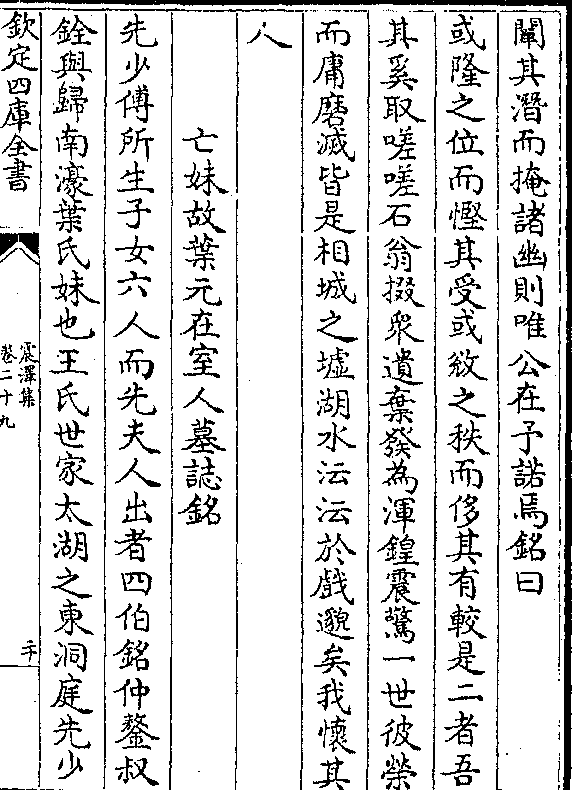 闡其潛而掩諸幽則唯公在予諾焉銘曰
或隆之位而慳其受或敚之秩而侈其有較是二者吾
其奚取嗟嗟石翁掇衆遺棄發為渾鍠震驚一世彼榮
而庸磨滅皆是相城之墟湖水沄沄於戲邈矣我懷其
人
亡妹故葉元在室人墓誌銘
先少傅所生子女六人而先夫人出者四伯銘仲鏊叔
銓與歸南濠葉氏妹也王氏世家太湖之東洞庭先少
欽定四庫全書
震澤集
卷二十九
二十